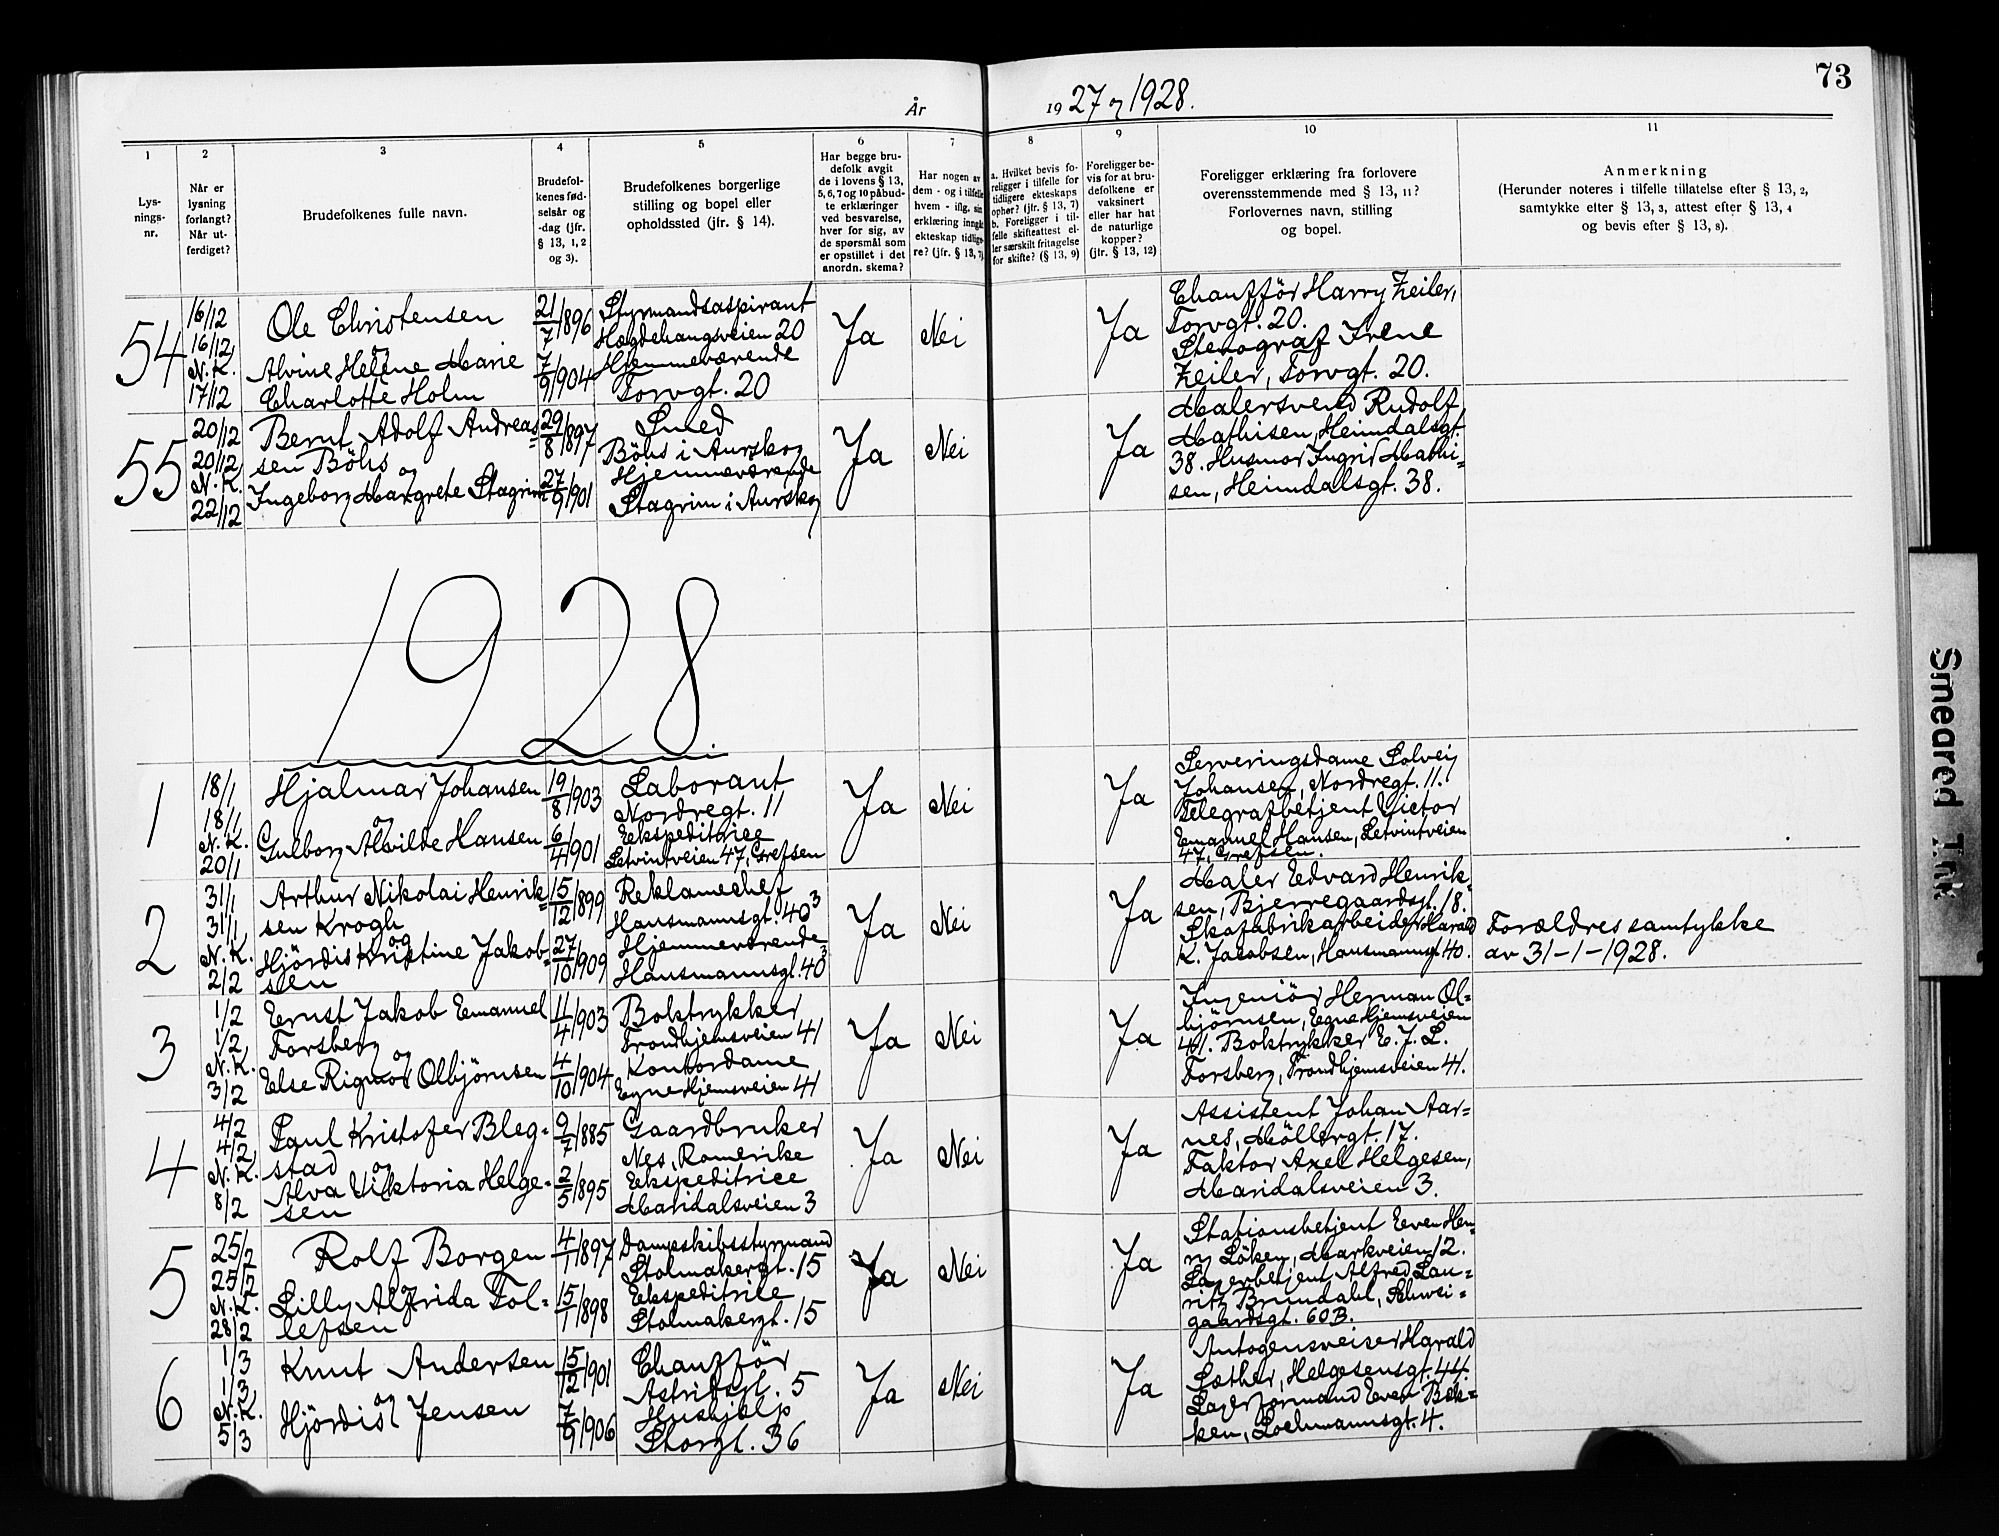 73
År 1927 og 1928.
1
2
3
4
5
6
7
8
9
10
11
Lys-
nings-
nr.
Når er
lysning
forlangt?
Når ut-
ferdiget?
Brudefolkenes fulle navn.
Brudefol-
kenes fød-
selsår og
-dag (jfr.
§ 13, 1, 2
og 3).
Brudefolkenes borgerlige
stilling og bopel eller
opholdssted (jfr. § 14).
Har begge bru-
defolk avgit
de i lovens § 13,
5, 6, 7 og 10 påbud-
te erklæringer
ved besvarelse,
hver for sig, av
de spørsmål som
er opstillet i det
anordn. skema?
Har nogen av
dem - og i tilfelle
hvem - iflg. sin
erklæring inngåt
ekteskap tidlige-
re? (jfr. § 13, 7)
a. Hvilket bevis fo-
religger i tilfelle for
tidligere ekteskaps
ophør? (jfr. § 13, 7)
b. Foreligger i til-
felle skifteattest el-
ler særskilt fritagelse
for skifte? (§ 13, 9)
Foreligger be-
vis for at bru-
defolkene er
vaksinert
eller har hat
de naturlige
kopper?
(jfr. § 13, 12)
Foreligger erklæring fra forlovere
overensstemmende med § 13, 11?
Forlovernes navn, stilling
og bopel.
Anmerkning
(Herunder noteres i tilfelle tillatelse efter § 13, 2,
samtykke efter § 13, 3, attest efter § 13, 4
og bevis efter § 13, 8).
54
16/12
16/12
N. K.
17/12
Ole Christensen
og
Alvine Helene Marie
Charlotte Holm
21/7 1896
7/9 1904
Styrmandsaspirant
Hægdehaugsveien 20
Hjemmeværende
Torvgt. 20
Ja
Nei
Ja
Chauffør Harry Zeiler,
Torvgt. 20.
Stenograf Irene
Zeiler, Torvgt. 20.
55
20/12
20/12
N. K.
22/12
Bernt Adolf Andreas=
sen Böhs
og
Ingeborg Margrete Stagrim
29/8 1897
27/9 1901
Smed
Böhs i Aurskog
Hjemmeværende
Stagrim i Aurskog
Ja
Nei
Ja
Malersvend Rudolf
Mathisen, Heimdalsgt.
38. Husmor Ingrid Mathi=
sen, Heimdalsgt. 38.
1928.
1
18/1
18/1
N. K.
20/1
Hjalmar Johansen
og
Gulborg Alvilde Hansen
19/8 1903
6/4 1901
Laborant
Nordregt. 11
Ekspeditrice
Letvintveien 47, Grefsen
Ja
Nei
Ja
Serveringsdame Solveig
Johansen, Nordregt. 11.
Telegrafbetjent Victor
Emanuel Hansen, Letvintveien
47, Grefsen.
2
31/1
31/1
N. K.
2/2
Arthur Nikolai Henrik=
sen Krogh
og
Hjördis Kristine Jakob=
sen
15/12 1899
27/10 1909
Reklamechef
Hausmannsgt. 40³
Hjemmeværende
Hausmannsgt. 40³
Ja
Nei
Ja
Maler Edvard Henrik=
sen, Bjerregaardsgt. 18.
Skofabrikarbeider Harald
K. Jacobsen, Hausmannsgt. 40.
Forældres samtykke
av 31-1-1928.
3
1/2
1/2
N. K.
3/2
Ernst Jakob Emanuel
Forsberg
og
Else Rigmor Olbjörnsen
11/4 1903
4/10 1904
Boktrykker
Trondhjemsveien 41
Kontordame
Egne Hjemsveien 41
Ja
Nei
Ja
Ingeniör Herman Ol=
björnsen, Egne Hjemsveien
41. Boktrykker E. J. L.
Forsberg, Trondhjemsveien 41.
4
4/2
4/2
N. K.
8/2
Paul Kristofer Bleg=
stad
og
Alva Viktoria Helge=
sen
9/7 1885
2/5 1895
Gaardbruker
Nes, Romerike
Ekspeditrice
Maridalsveien 3
Ja
Nei
Ja
Assistent Johan Aar=
nes, Möllergt. 17.
Faktor Axel Helgesen,
Maridalsveien 3.
5
25/2
25/2
N. K.
28/2
Rolf Borgen
og
Lilly Alfrida Tol=
lefsen
4/1 1897
15/1 1898
Dampskibsstyrmand
Stolmakergt. 15
Ekspeditrice
Stolmakergt. 15
Ja
Nei
Ja
Stationsbetjent Even Hen=
ry Löken, Markveien 12.
Lagerbetjent Alfred Lau=
ritz Brundahl, Schwei=
gaardsgt. 60 B.
6
1/3
1/3
N. K.
5/3
Knut Andersen
og
Hjördis Jensen
15/12 1901
7/9 1906
Chauffør
Astridsgt. 5
Hushjælp
Storgt. 36
Ja
Nei
Ja
Autogensveiser Harald
Lather, Helgesensgt. 44.
Lagerformand Even Bek=
ken, Lochmannsgt. 4.
Smeared Ink